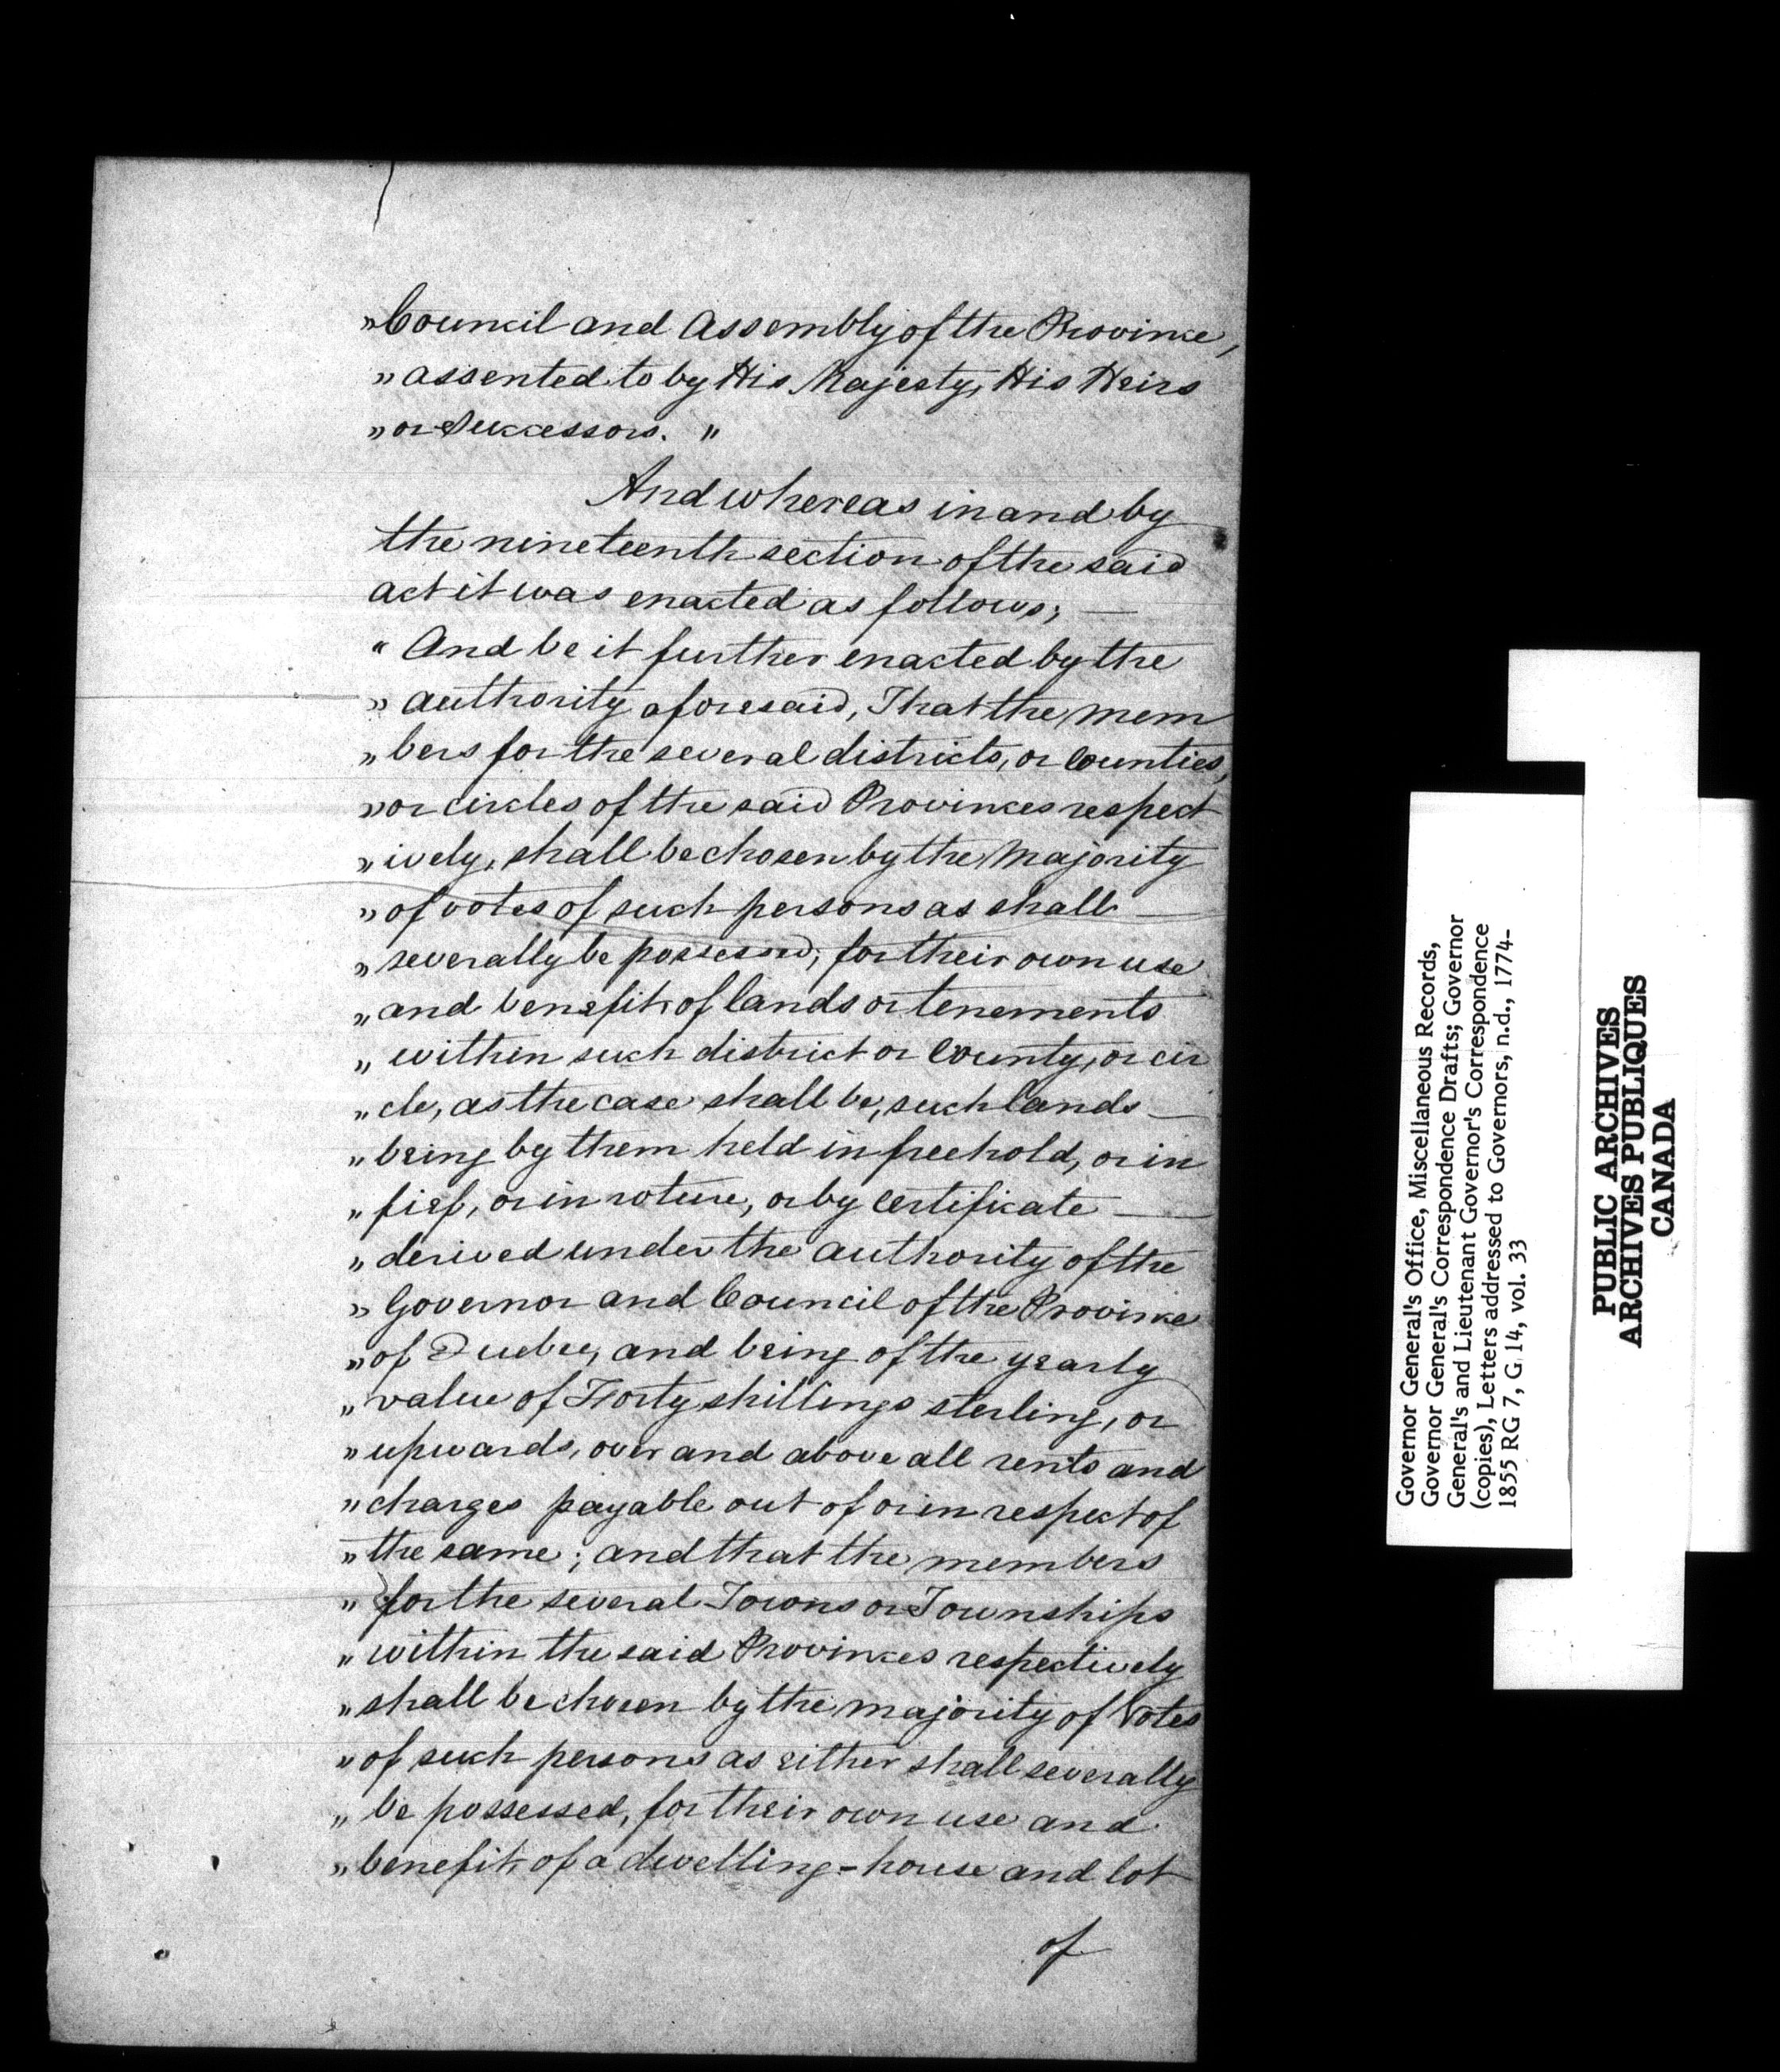 „Council and Assembly of the Province,
„assented to by His Majesty, His Heirs
„or Successors. "
And whereas in and by
the nineteenth section of the said
act it was enacted as follows; —
" And be it further enacted by the
„ authority aforesaid, That the mem
„ bers for the several districts, or Counties,
„or circles of the said Provinces respect
„ ively, shall be chosen by the Majority
„ of votes of such persons as shall —
„ severally be possessed, for their own use
„ and benefit of lands or tenements
„ within such district or County, or cir
„ cle, as the case shall be, such lands —
„ being by them held in freehold, or in
„ fief, or in roture, or by certificate —
„ derived under the authority of the
„ Governor and Council of the Province
„ of Quebec, and being of the yearly
„ value of Forty shillings sterling, or
„ upwards, over and above all rents and
„ charges payable out of or in respect of
„ the same; and that the members
„ for the several Towns or Townships
„ within the said Provinces respectively
„ shall be chosen by the majority of Votes
„ of such persons as either shall severally
„ be possessed, for their own use and
„ benefit of a dwelling-house and lot
of
Governor General's Office, Miscellaneous Records,
Governor General's Correspondence Drafts; Governor
General's and Lieutenant Governor's Correspondence
(copies), Letters addressed to Governors, n.d., 1774-
1855 RG 7, G 14, vol. 33
PUBLIC ARCHIVES
ARCHIVES PUBLIQUES
CANADA